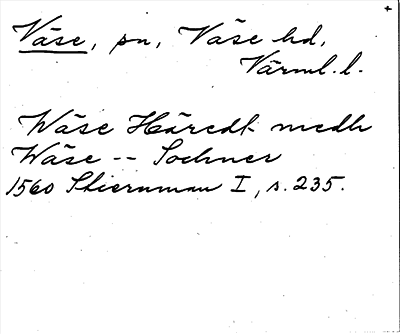 Väse, sn, Väse hd,
Värml. l.
Wäse Häredt medh
Wäse -- Sochner
1560 Stiernman I, s. 235.